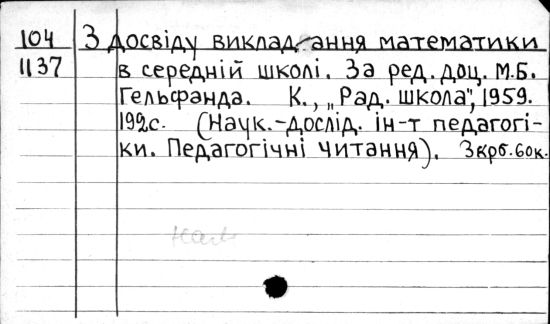 104 З досвіду викладання математики
1137 в середній школі. За ред. доц. М.Б.
Гельфанда. К., „Рад. школа", 1959.
192с. (Наук.-дослід. ін-т педагогі-
ки. Педагогічні читання). 3крб.60к.